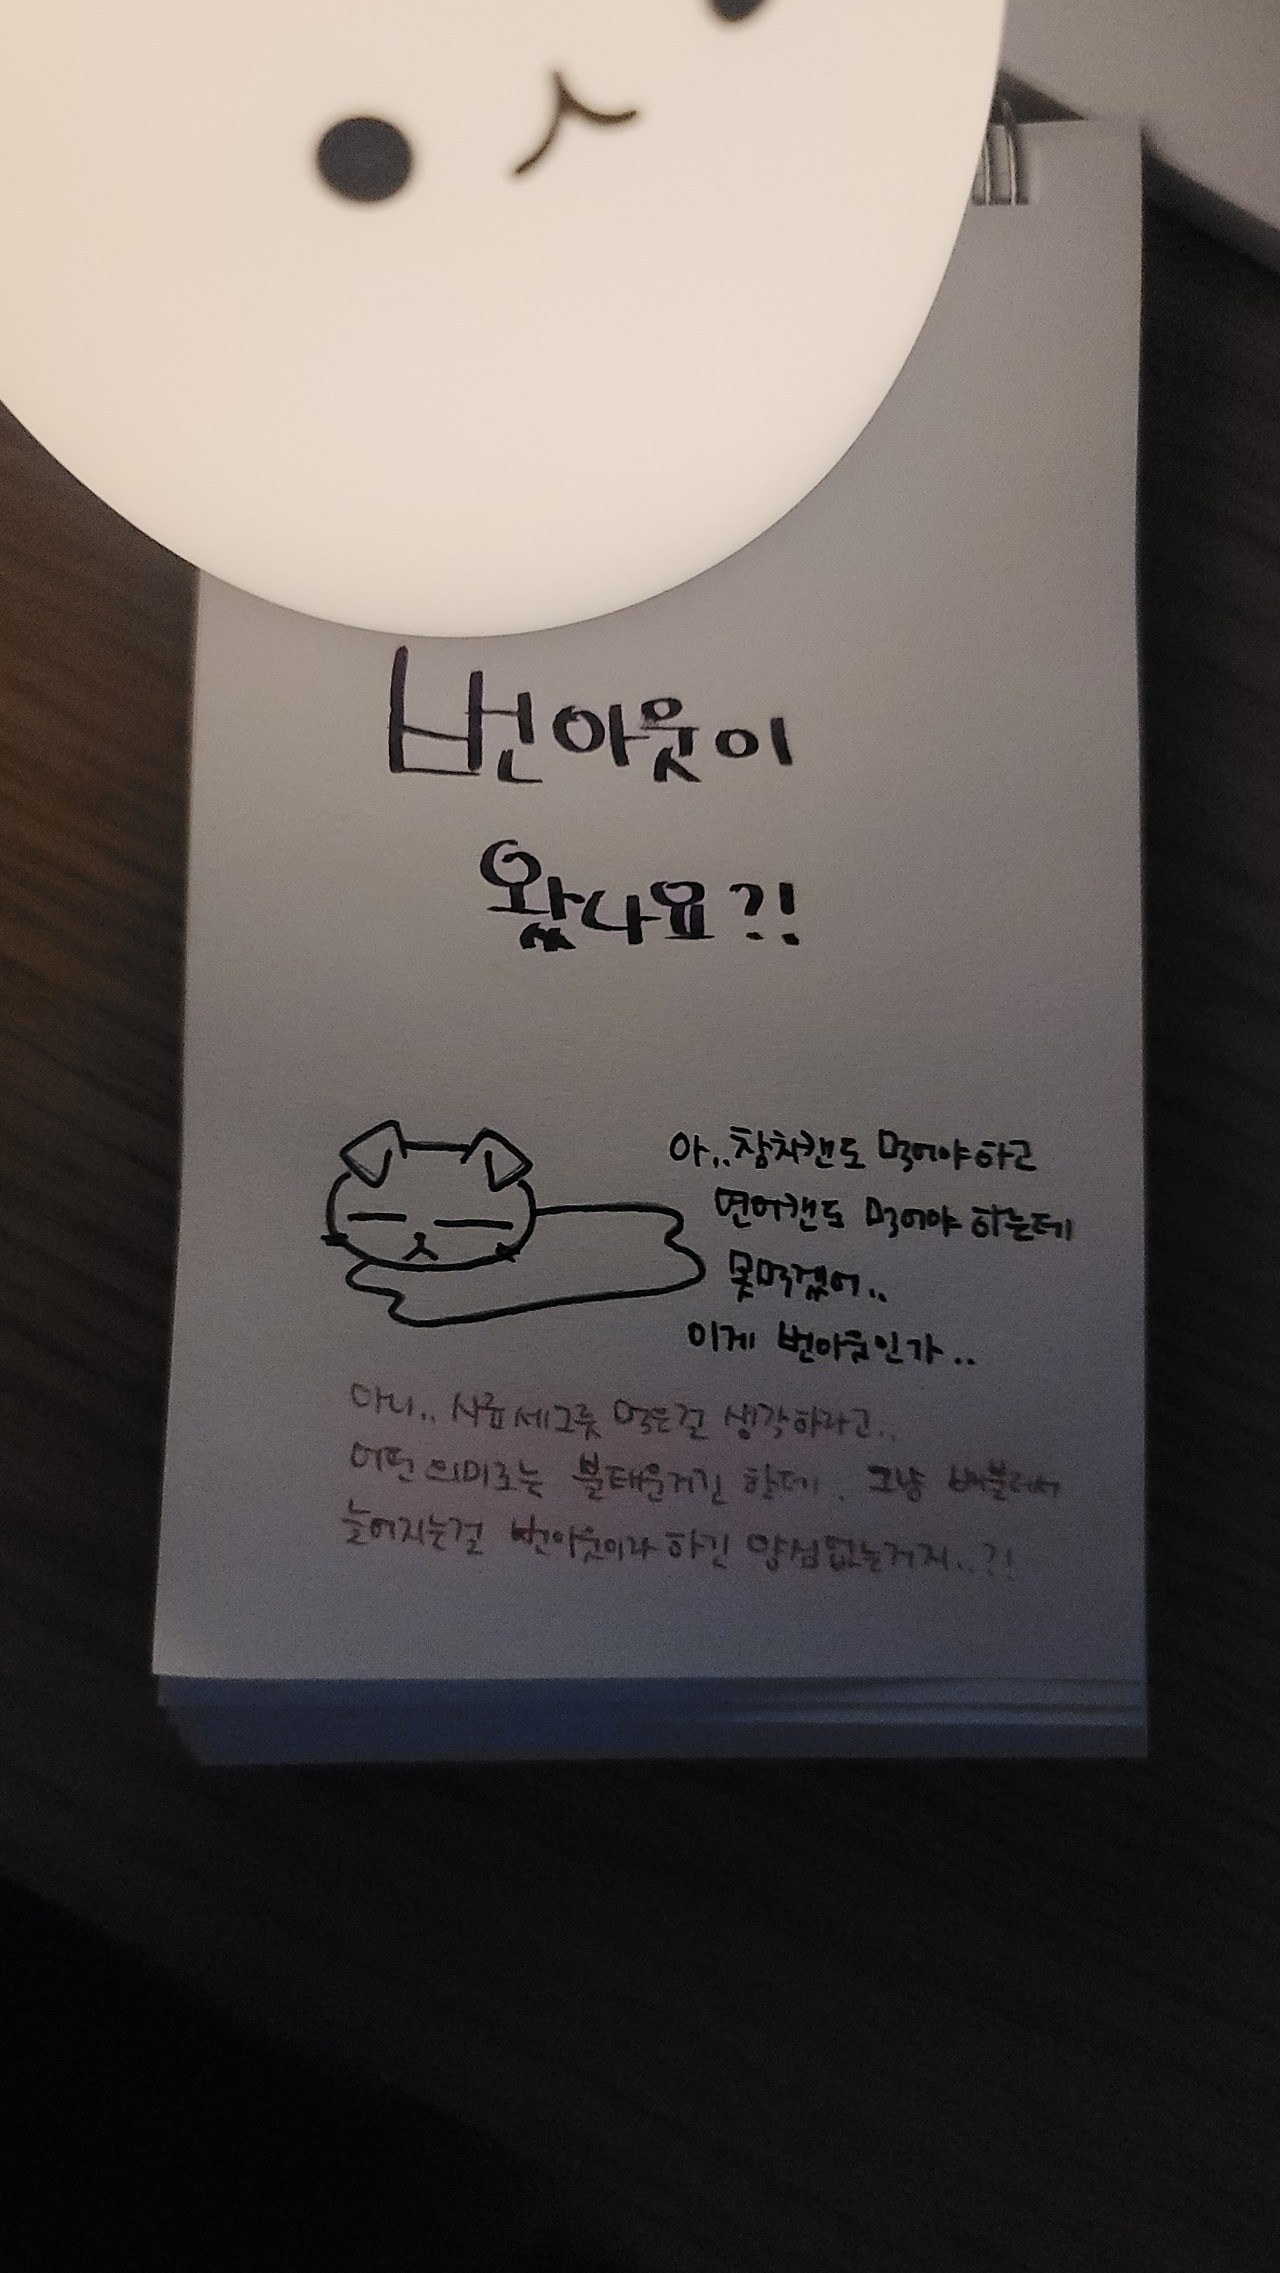 번아웃이
왔나요?!
아..참치캔도 먹어야하고
연어캔도 먹어야 하는데
못먹겠어..
이게 번아웃인가..
아니.. 사료세그릇 먹은건 생각하라고..
어떤 의미로는 불태운거긴 한데.. 그냥 배불러서
늘어지는걸 번아웃이라 하긴 양심없는거지..?!